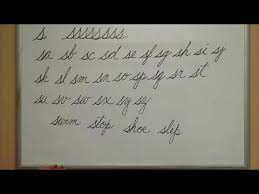 s ssssssss
sa sb sc sd se sf sg sh si sj
sk sl sm sn so sp sq sr st
su sv sw sx sy sz
swim stop shoe slip